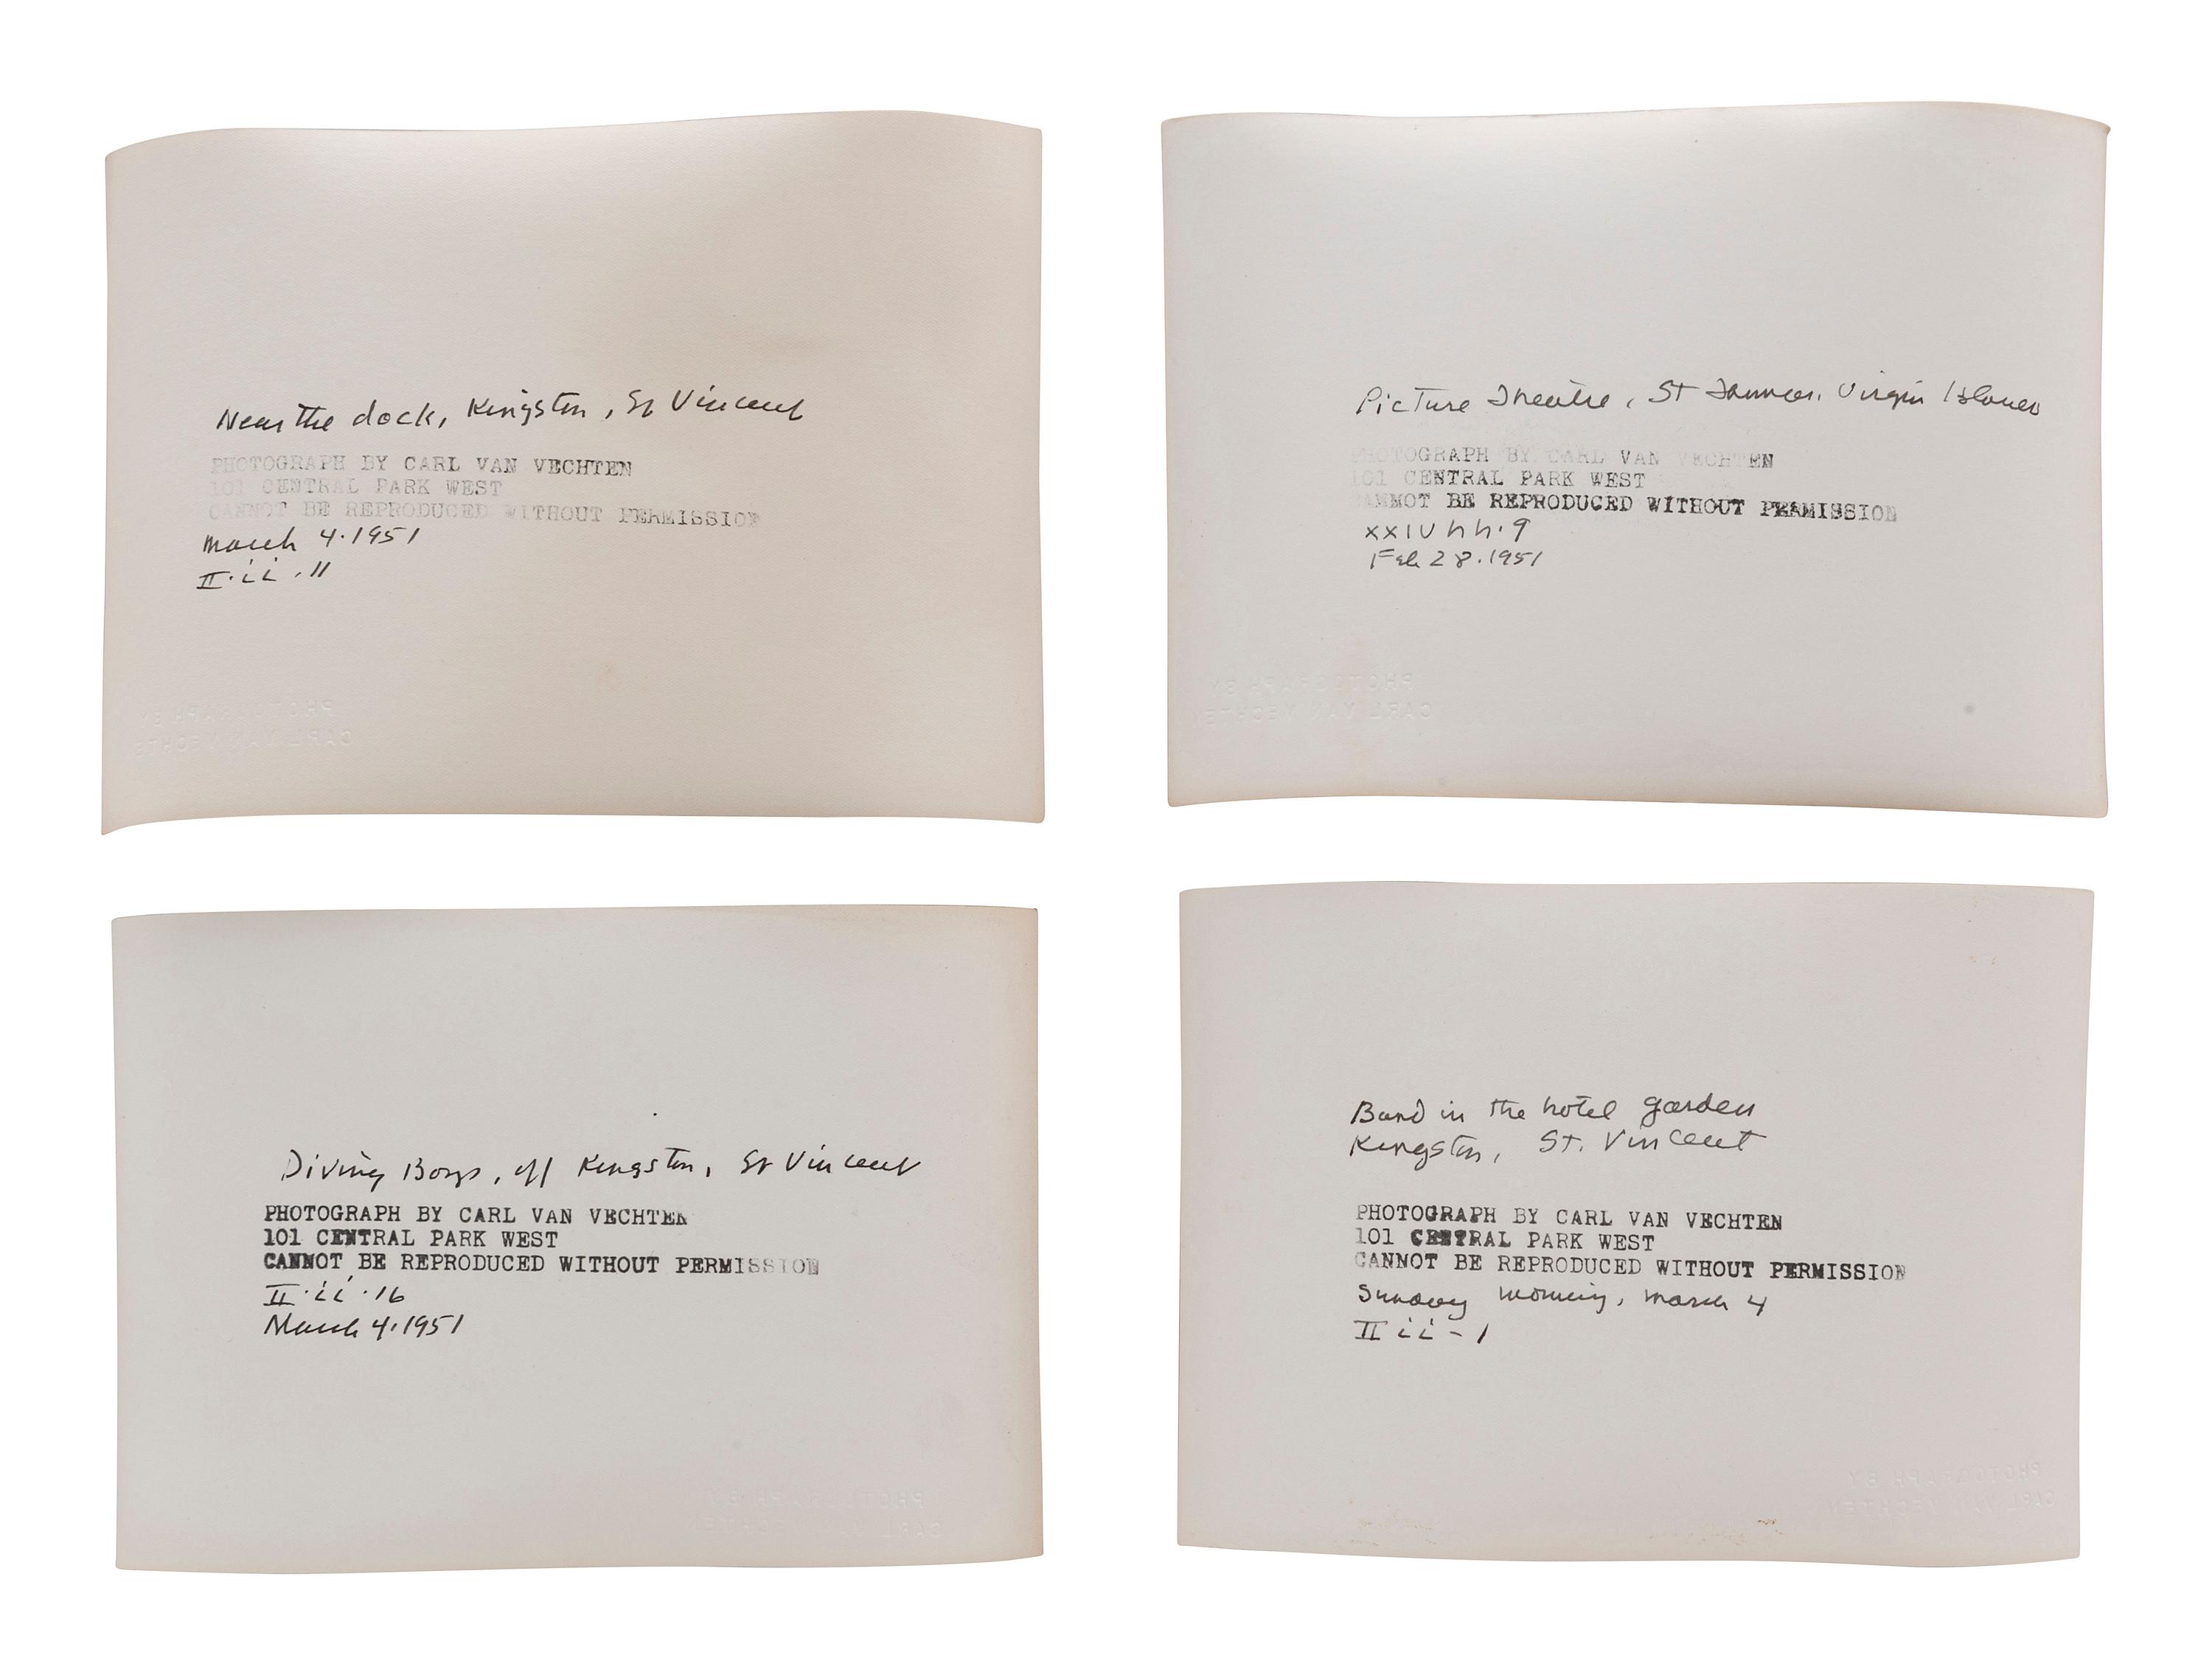 Near the dock, Kingston, St Vincent
PHOTOGRAPH BY CARL VAN VECHTEN
101 CENTRAL PARK WEST
CANNOT BE REPRODUCED WITHOUT PERMISSION
March 4.1951
II.ii.11
PHOTOGRAPH BY
CARL VAN VECHTEN
Picture Theatre, St Thomas, Virgin Islands
PHOTOGRAPH BY CARL VAN VECHTEN
101 CENTRAL PARK WEST
CANNOT BE REPRODUCED WITHOUT PERMISSION
xxiv hh.9
Feb 28.1951
PHOTOGRAPH BY
CARL VAN VECHTEN
Diving Boys, off Kingston, St Vincent
PHOTOGRAPH BY CARL VAN VECHTEN
101 CENTRAL PARK WEST
CANNOT BE REPRODUCED WITHOUT PERMISSION
II.ii.16
March 4.1951
PHOTOGRAPH BY
CARL VAN VECHTEN
Band in the hotel garden
Kingston, St. Vincent
PHOTOGRAPH BY CARL VAN VECHTEN
101 CENTRAL PARK WEST
CANNOT BE REPRODUCED WITHOUT PERMISSION
Sunday morning, March 4
II ii - 1
PHOTOGRAPH BY
CARL VAN VECHTEN